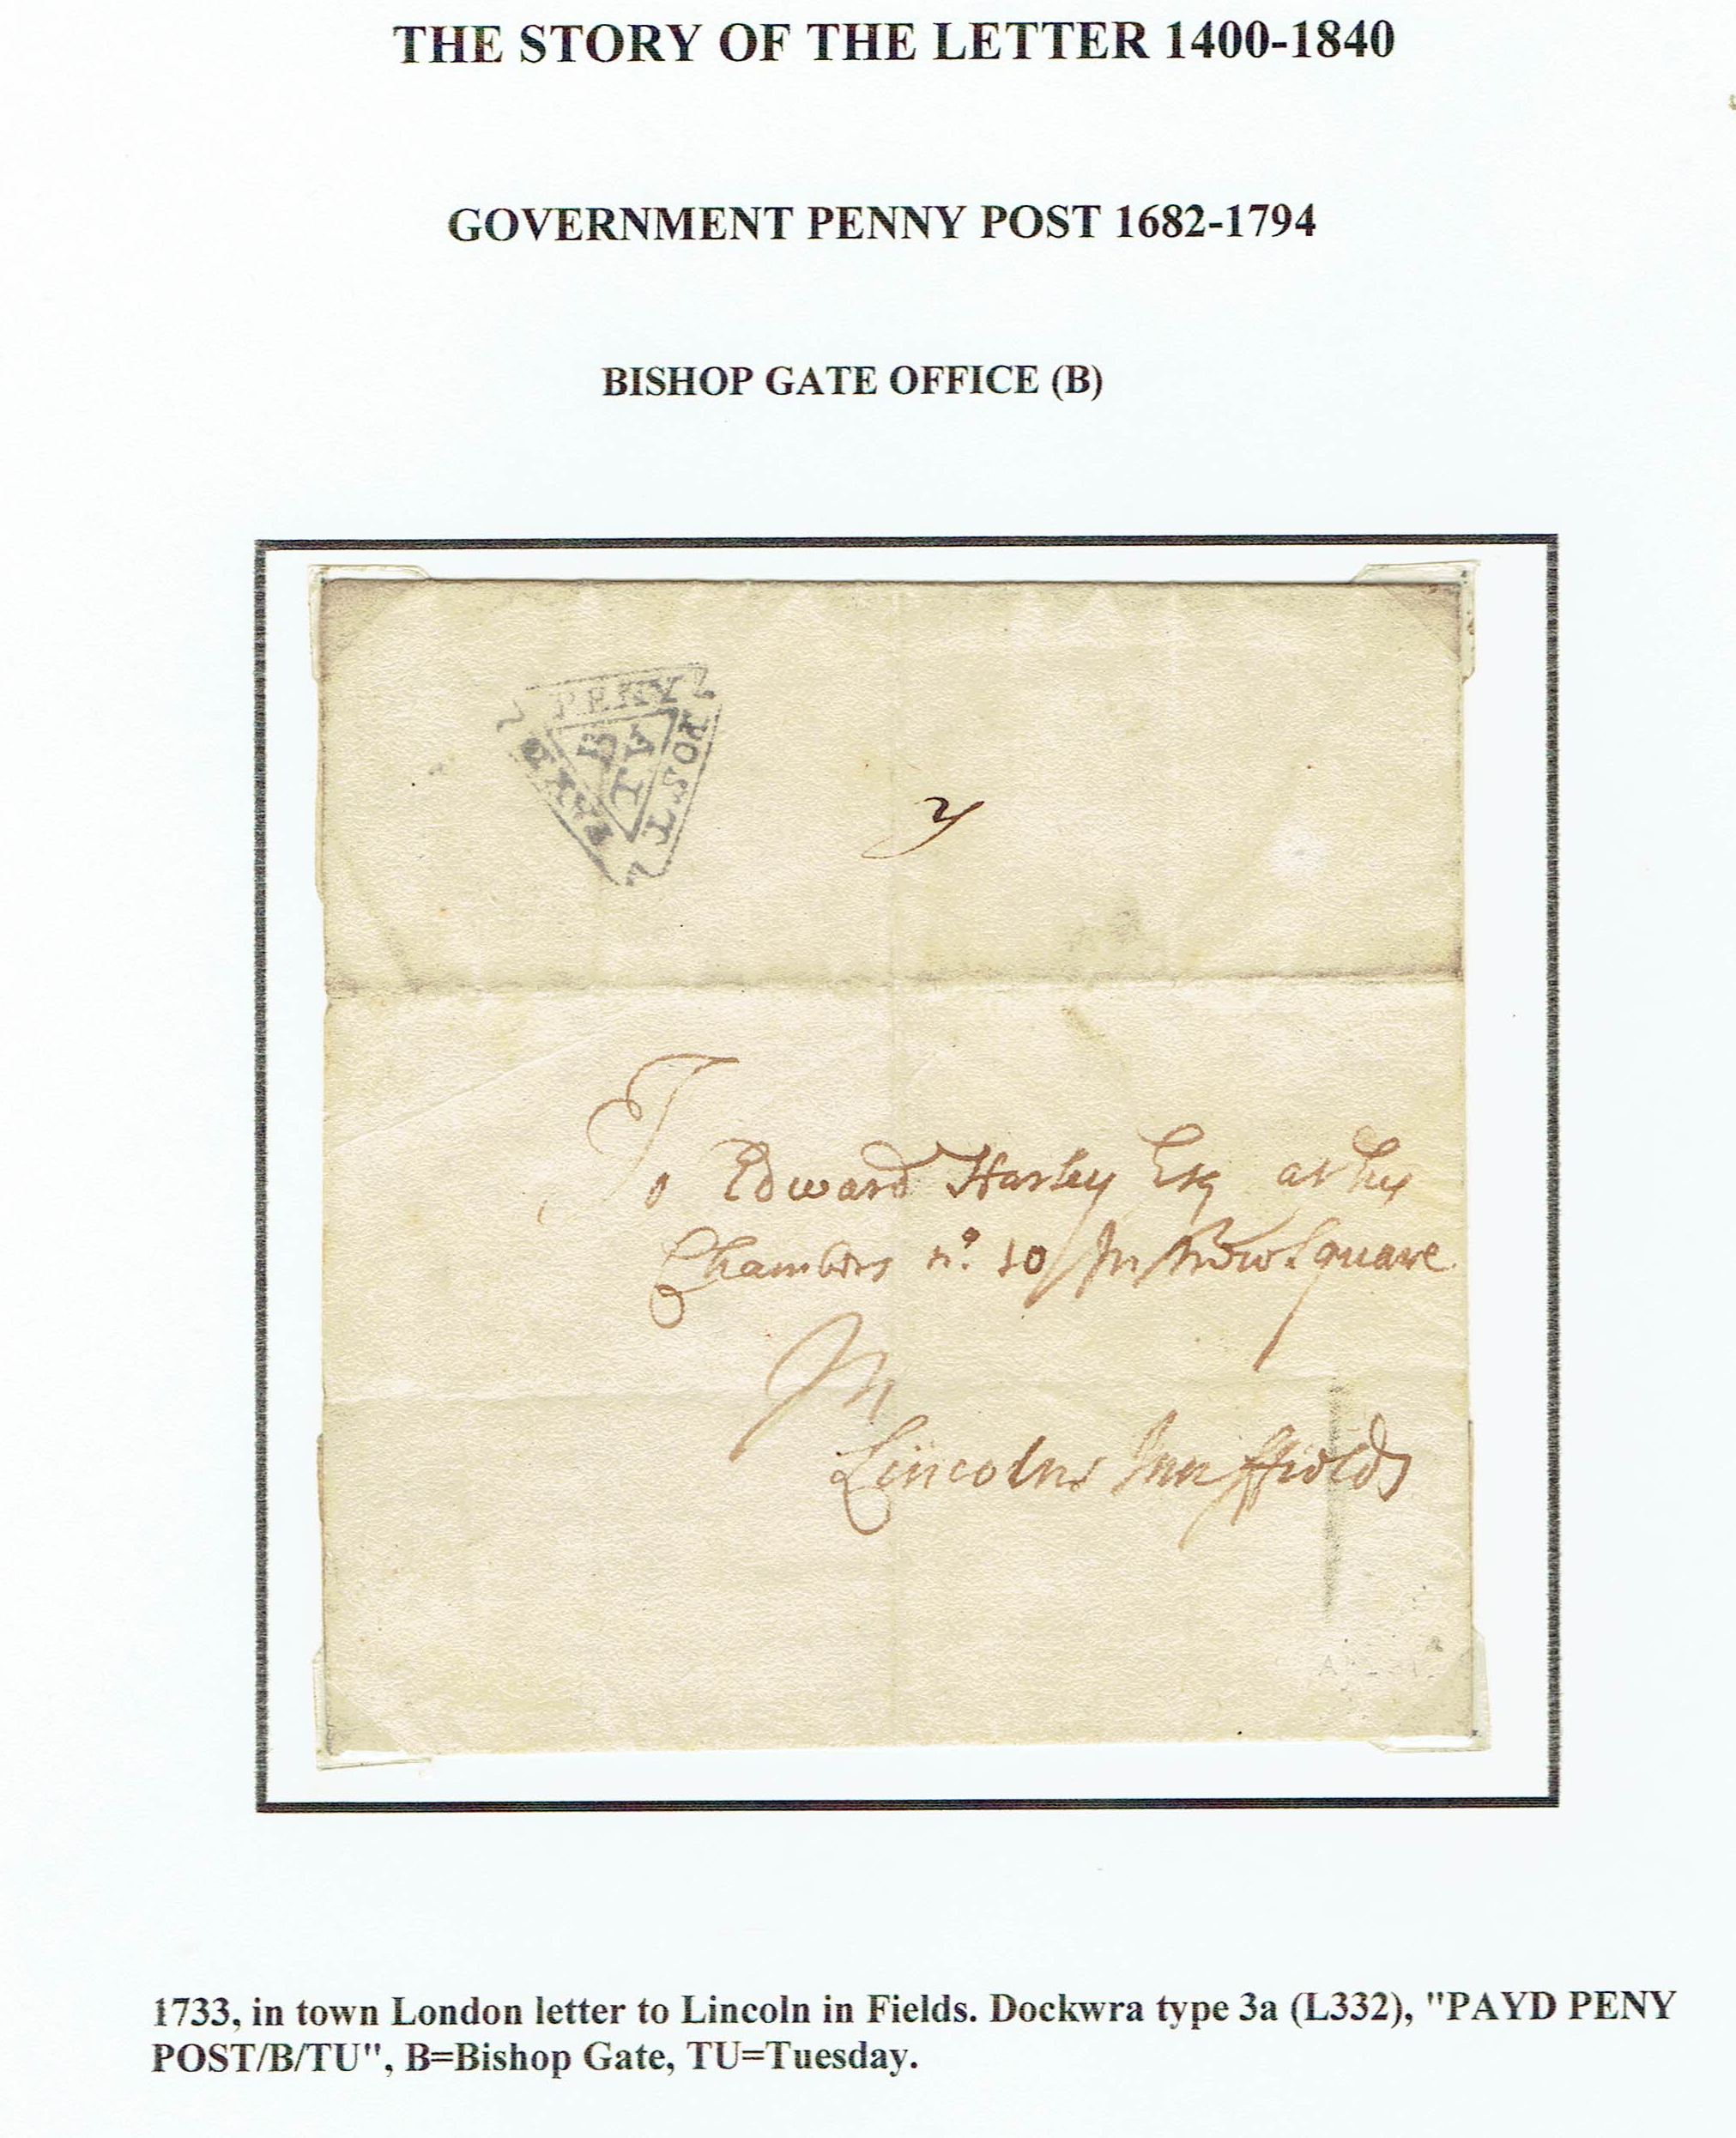 THE STORY OF THE LETTER 1400-1840
GOVERNMENT PENNY POST 1682-1794
BISHOP GATE OFFICE (B)
PENY
POST
PAYD
B
To Edward Harley Esq at his
Chambers no. 10 In New Square
In
Lincolns Inn ffields
1733, in town London letter to Lincoln in Fields. Dockwra type 3a (L332), "PAYD PENY
POST/B/TU", B=Bishop Gate, TU=Tuesday.